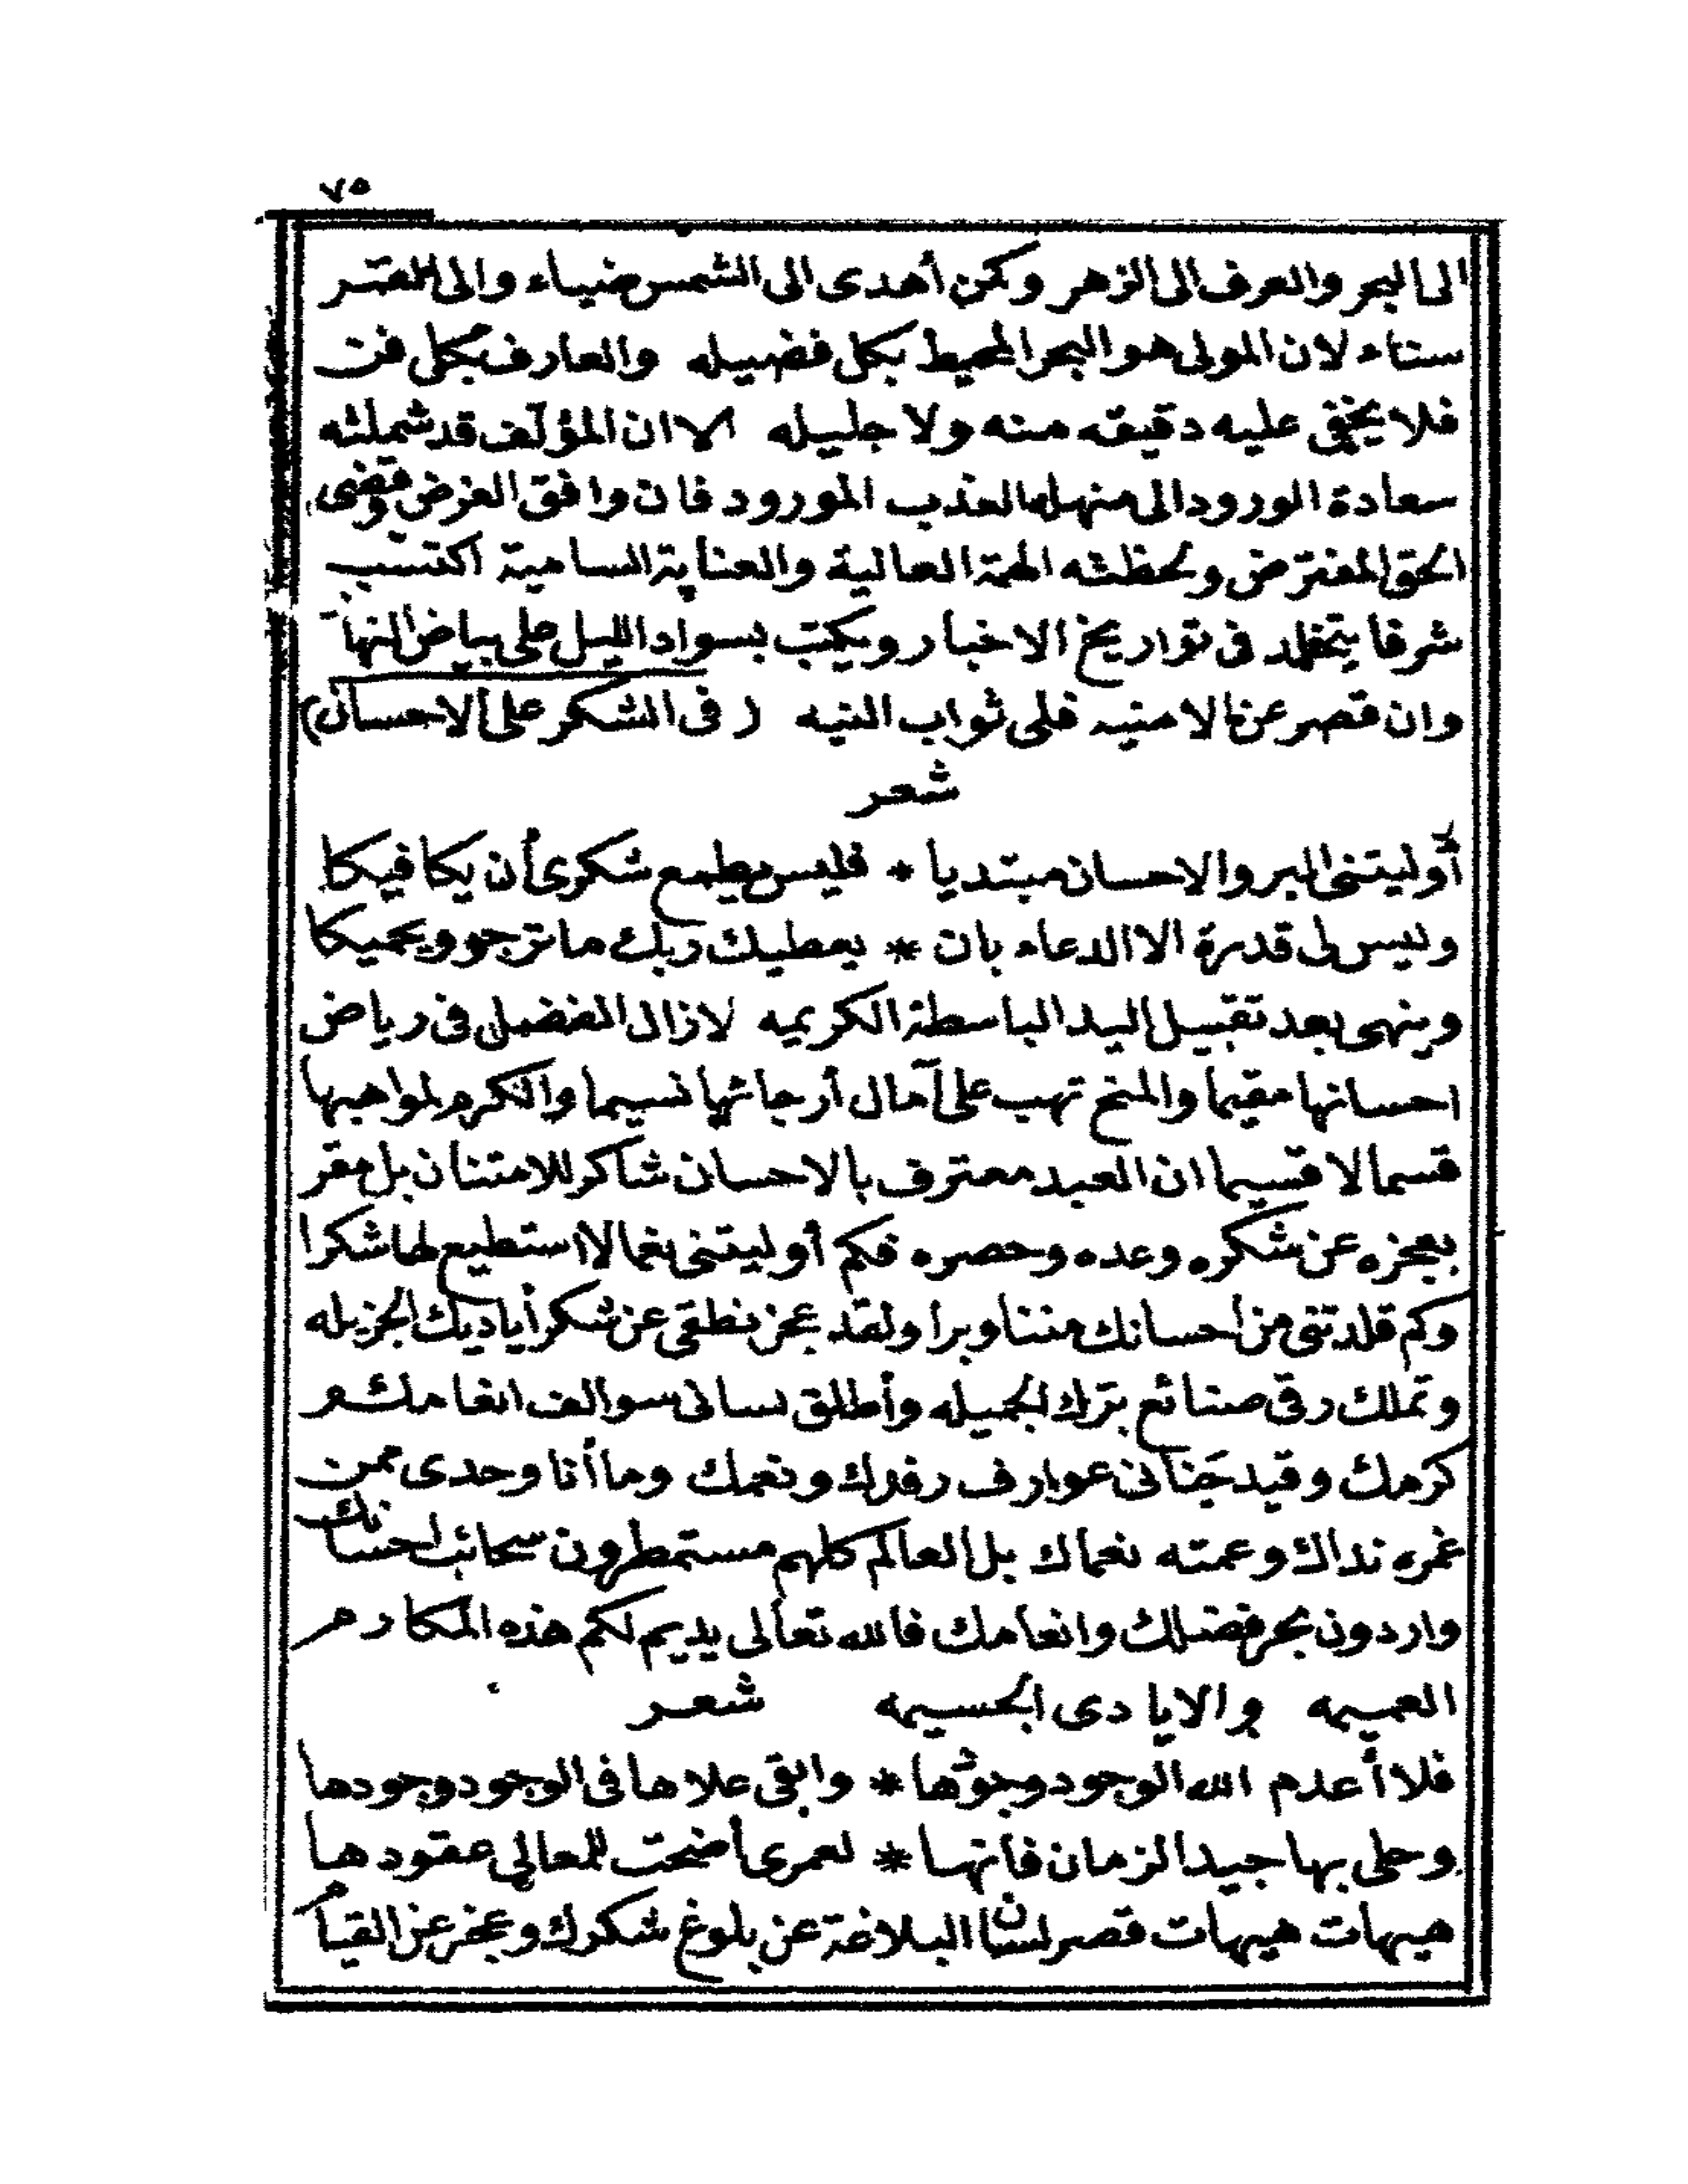 ٧٥
الى البحر والعرف الى الزهر وكمن أهدى الى الشمس ضياء والى القمر
سناء لان المولى هو البحر المحيط بكل فضيله والعارف بكل فن
فلا يخفى عليه دقيقه منه ولا جليله الا ان المؤلف قد شملته
سعادة الورود الى منهله العذب المورود فان وافق الغرض وقضى
الحق المفترض ولحظته الهمة العالية والعناية السامية اكتسب
شرفا يتخلد فى تواريخ الاخبار ويكتب بسواد الليل على بياض النهار
وان قصر عن الامنيه فلى ثواب النيه ( فى الشكر على الاحسان )
شعر
أوليتنى البر والاحسان مبتديا * فليس يطمع شكرى أن يكافيكا
وليس لى قدرة الا الدعاء بان * يعطيك ربك ما ترجو ويحميكا
وينهى بعد تقبيل اليد الباسطة الكريمه لازال الفضل فى رياض
احسانها مقيما والمنح تهب على آمال أرجائها نسيما والكرم لمواهبها
قسما لا قسيما ان العبد معترف بالاحسان شاكر للامتنان بل مقر
بعجزه عن شكره وعده وحصره فكم أوليتنى نعما لا استطيع لها شكرا
وكم قلدتنى من احسانك مننا وبرا ولقد عجز نطقى عن شكر أياديك الجزيله
وتملك رقى صنائع برك الجميله وأطلق لسانى سوالف انعامك و
كرمك وقيد جنانى عوارف رفدك ونعمك وما أنا وحدى ممن
غمره نداك وعمته نعماك بل العالم كلهم مستمطرون سحائب احسانك
واردون بحر فضلك وانعامك فالله تعالى يديم لكم هذه المكارم
العميمه والايادى الجسيمه شعر
فلا أعدم الله الوجود وجودها * وابقى علاها فى الوجود وجودها
وحلى بها جيد الزمان فانها * لعمرى أضحت للمعالى عقودها
هيهات هيهات قصر لسان البلاغة عن بلوغ شكرك وعجز عن القيام